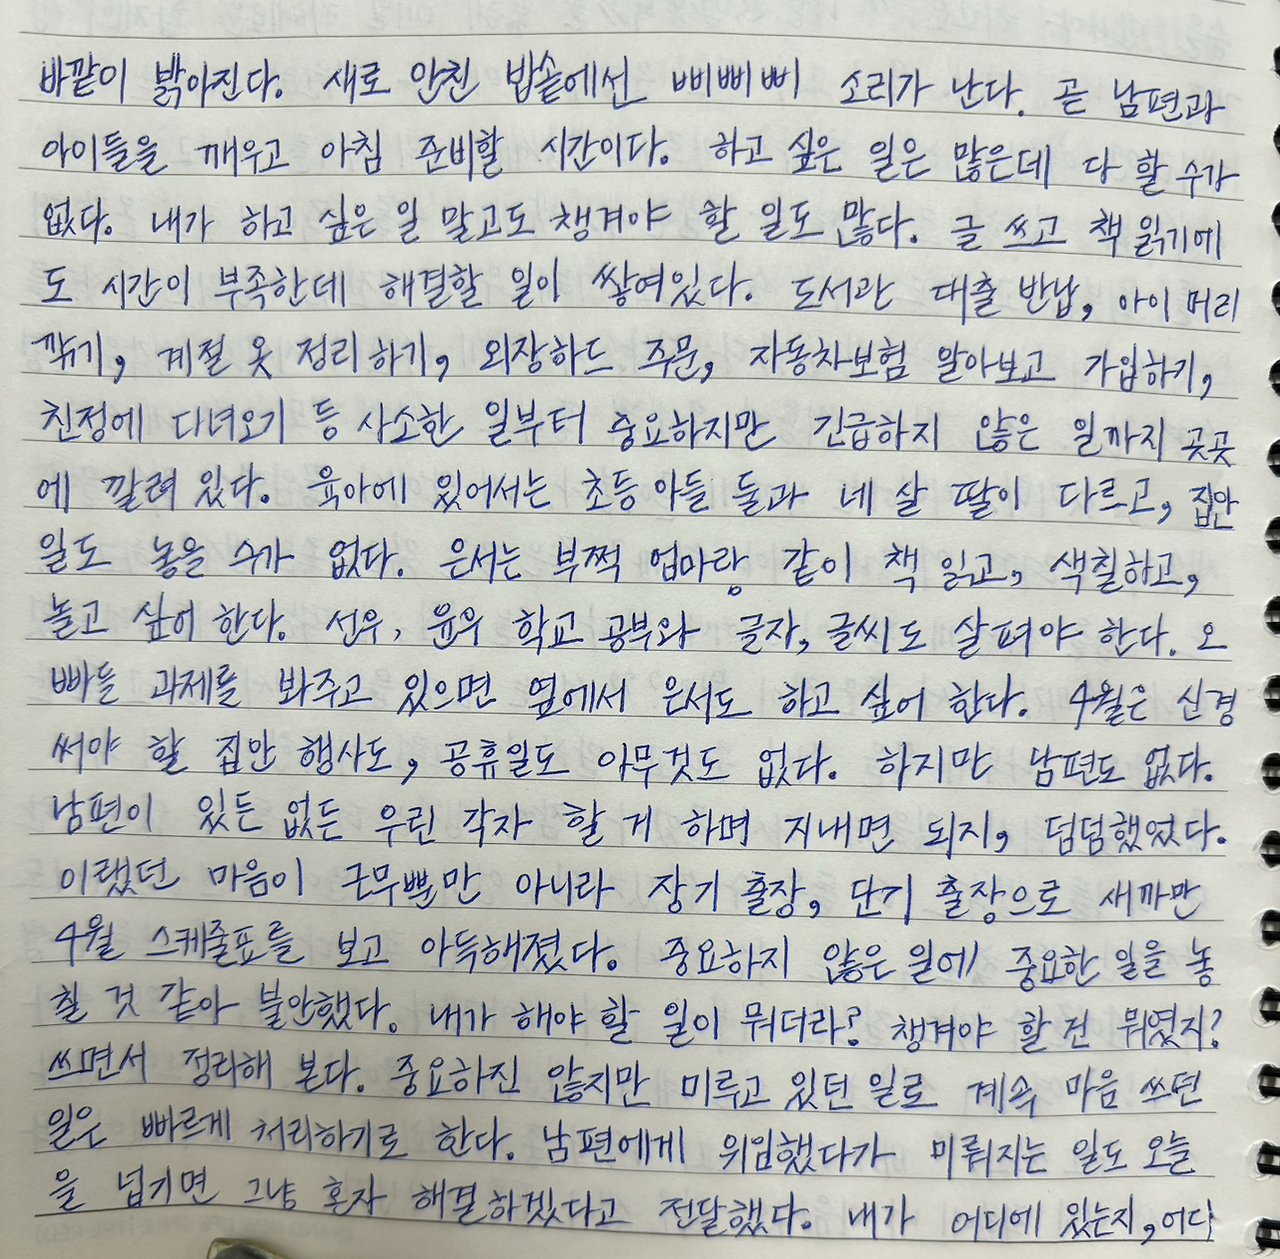 바깥이 밝아진다. 새로 안친 밥솥에선 삐삐삐 소리가 난다. 곧 남편과
아이들을 깨우고 아침 준비할 시간이다. 하고 싶은 일은 많은데 다 할 수가
없다. 내가 하고 싶은 일 말고도 챙겨야 할 일도 많다. 글 쓰고 책 읽기에
도 시간이 부족한데 해결할 일이 쌓여있다. 도서관 대출 반납, 아이 머리
깎기, 계절 옷 정리하기, 외장하드 주문, 자동차보험 알아보고 가입하기,
친정에 다녀오기 등 사소한 일부터 중요하지만 긴급하지 않은 일까지 곳곳
에 깔려 있다. 육아에 있어서는 초등 아들 둘과 네 살 딸이 다르고, 집안
일도 놓을 수가 없다. 은서는 부쩍 엄마랑 같이 책 읽고, 색칠하고,
놀고 싶어 한다. 선우, 윤우 학교 공부와 글자, 글씨도 살펴야 한다. 오
빠들 과제를 봐주고 있으면 옆에서 은서도 하고 싶어 한다. 4월은 신경
써야 할 집안 행사도, 공휴일도 아무것도 없다. 하지만 남편도 없다.
남편이 있든 없든 우린 각자 할 게 하며 지내면 되지, 덤덤했었다.
이랬던 마음이 근무뿐만 아니라 장기 출장, 단기 출장으로 새까만
4월 스케줄표를 보고 아득해졌다. 중요하지 않은 일에 중요한 일을 놓
칠 것 같아 불안했다. 내가 해야 할 일이 뭐더라? 챙겨야 할 건 뭐였지?
쓰면서 정리해 본다. 중요하진 않지만 미루고 있던 일로 계속 마음 쓰던
일은 빠르게 처리하기로 한다. 남편에게 위임했다가 미뤄지는 일도 오늘
을 넘기면 그냥 혼자 해결하겠다고 전달했다. 내가 어디에 있는지, 어디